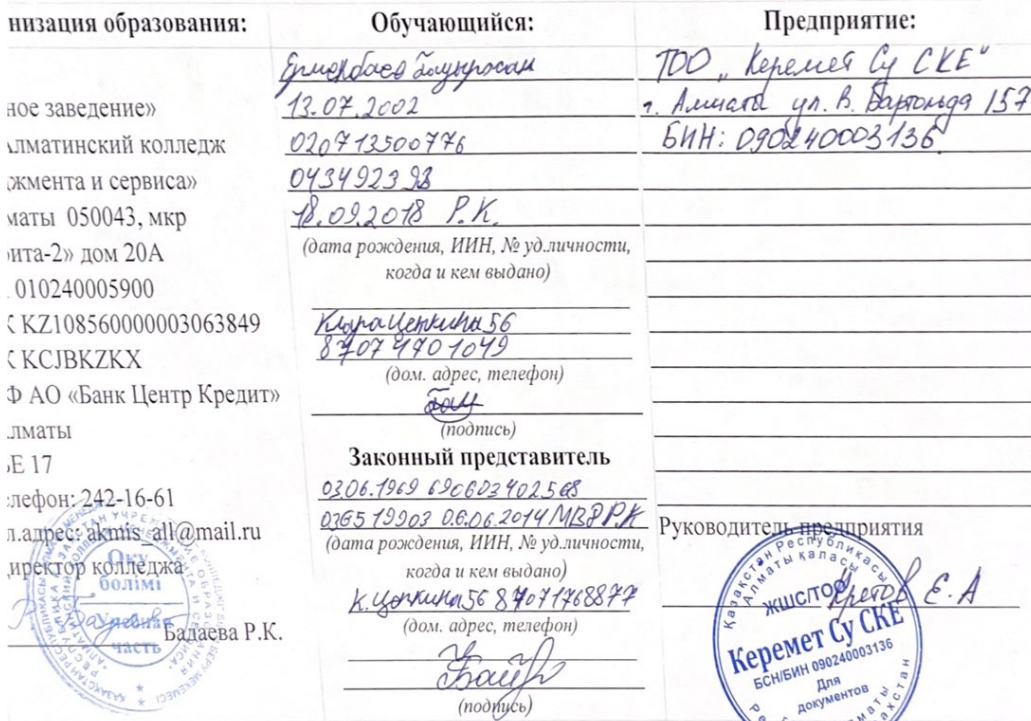 низация образования:
ное заведение»
лматинский колледж
жмента и сервиса»
маты 050043, мкр
ита-2» дом 20А
010240005900
К KZ108560000003063849
К KCJBKZKX
Ф АО «Банк Центр Кредит»
лматы
БЕ 17
елефон: 242-16-61
л.адрес: akmis_all@mail.ru
иректор колледжа
Оқу
бөлімі
Учебная
часть
Бадаева Р.К.
Обучающийся:
13.07.2002
020713500776
043492393
18.09.2018 Р.К.
(дата рождения, ИИН, № уд.личности,
когда и кем выдано)
Клара Цеткина 56
87074701049
(дом. адрес, телефон)
(подпись)
Законный представитель
03.06.1969 690603402568
036519903 06.06.2014 МВД Р.К
(дата рождения, ИИН, № уд.личности,
когда и кем выдано)
К.Цеткина 56 87071768877
(дом. адрес, телефон)
(подпись)
Предприятие:
ТОО "Керемет Су СКЕ"
г. Алматы ул. В. Бартольда 157
БИН: 090240003136
Руководитель предприятия
Кретов Е.А
Қазақстан Республикасы
Алматы қаласы
ЖШС/ТОО
Керемет Су СКЕ
БСН/БИН 090240003136
Для
документов